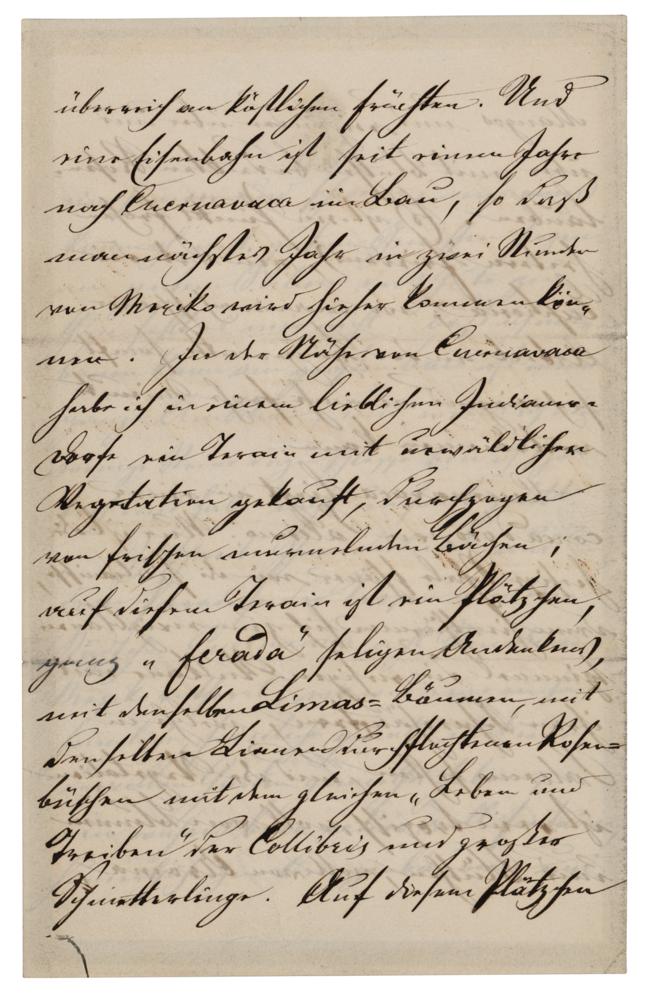 überreich an köstlichen Früchten. Und
eine Eisenbahn ist seit einem Jahre
nach Cuernavaca im Bau, so daß
man nächstes Jahr in zwei Stunden
von Mexiko wird hieher kommen kön„
nen. In der Nähe von Cuernavaca
habe ich in einem lieblichen Indianer=
dorfe ein Terain mit urwäldlicher
Vegetation gekauft, durchzogen
von frischen murmelnden Bächen;
auf diesem Terain ist ein Plätzchen,
ganz „ferada" seligen Andenkens,
mit denselben Limas=Bäumen, mit
denselben Lianen durchflochtenen Rosen=
büschen mit dem gleichen „Leben und
Treiben" der Collibris und großer
Schmetterlinge. Auf diesem Plätzchen